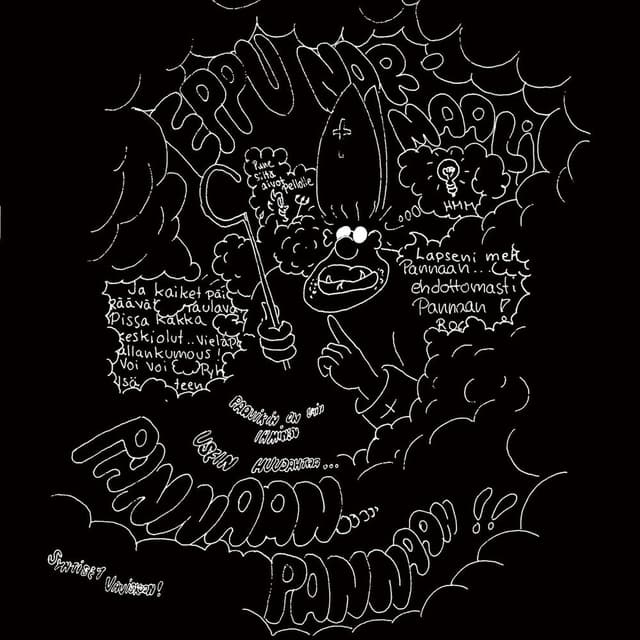 EPPU NOR-
MAALI
Pune
siitä
aivos pellolle
HMM
Lapseni meh
Pannaan...
ehdottomasti
Pannaan !
Ja kaiket päi
räävät raulava
Pissa kakka
keskiolut..vieläpä
allankumous!
Voi voi
teen
PAAVIKIN ON VAIN
IHMINEN
USEIN HUUDAHTAA...
PANNAAN....
PANNAAN!!
SYNTISET